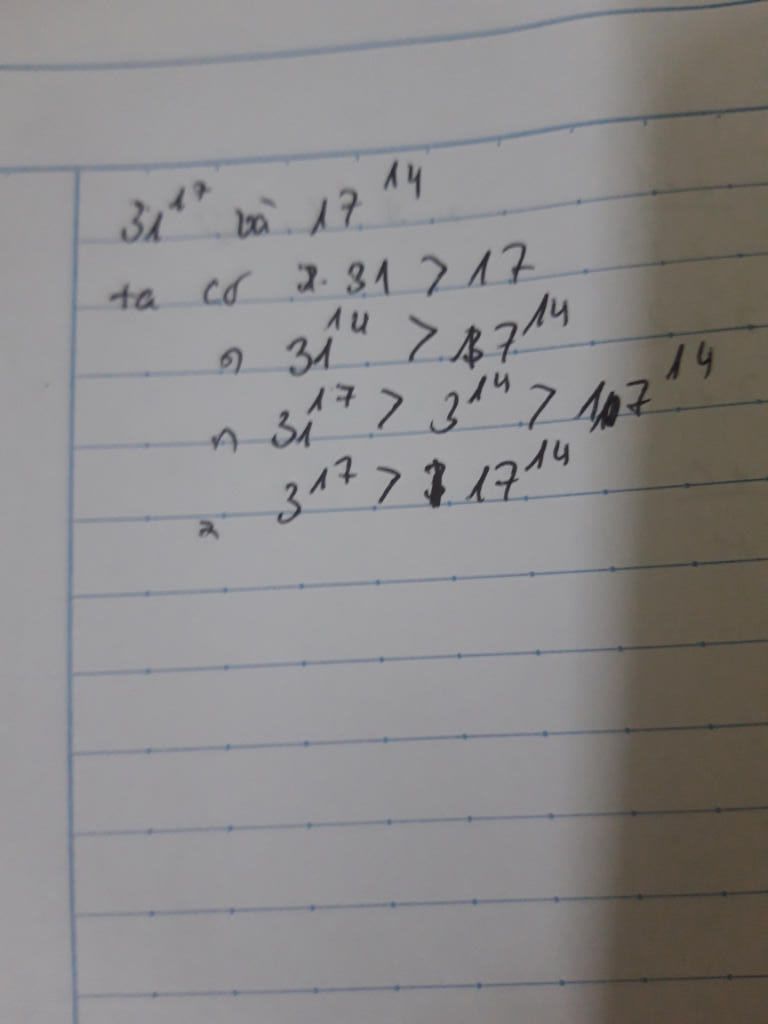 31¹⁷ và 17¹⁴
ta có 31 > 17
31¹⁴ > 17¹⁴
31¹⁷ > 3¹⁴ > 17¹⁴
3¹⁷ > 17¹⁴